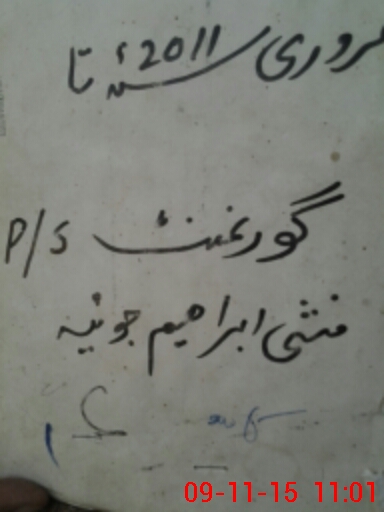 فروری 2011ء تا
گورنمنٹ P/S
منشی ابراہیم جونیہ
09-11-15 11:01